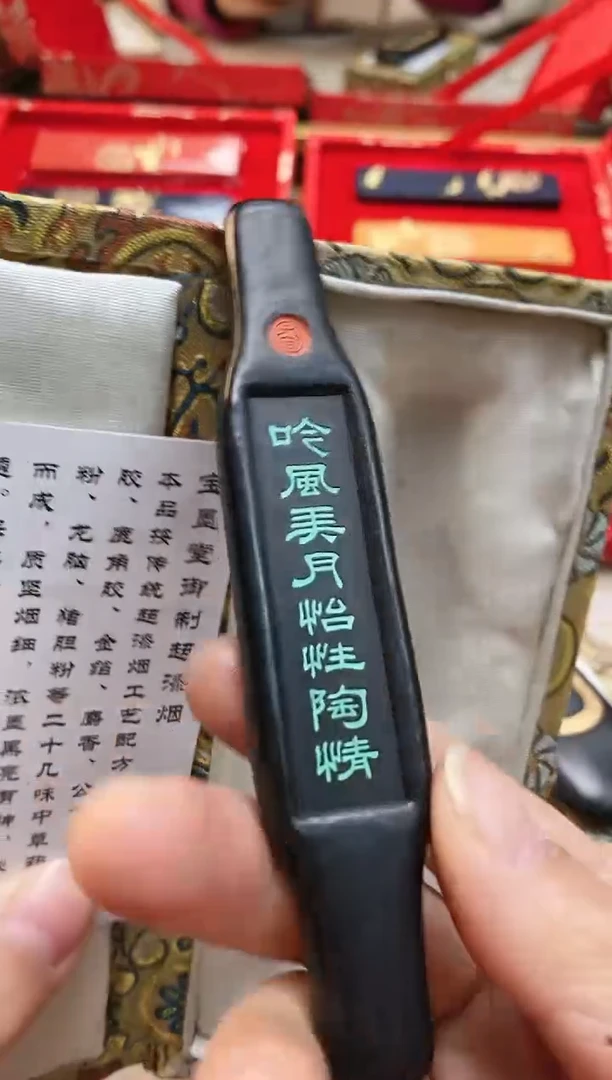 吟風弄月怡性陶情
宝墨堂御制超漆烟
本品按传统超漆烟工艺配方
胶、鹿角胶、金箔、麝香、公
粉、龙脑、猪胆粉等二十几味中草药
而成，质坚烟细，浓墨黑亮有神，